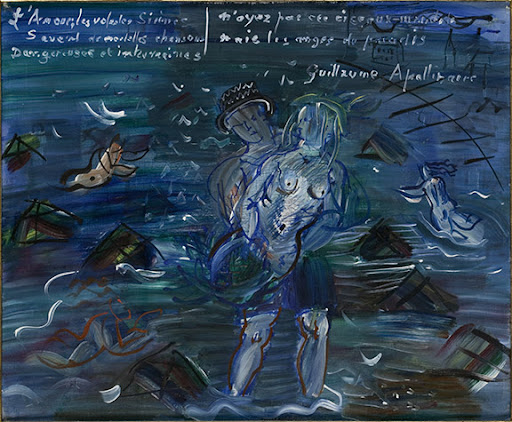 L'Amour, les volantes Sirènes
Savent de mortelles chansons
Dangereuses et inhumaines
n'oyez pas ces oiseaux maudits
mais les anges du paradis
Guillaume Apollinaire